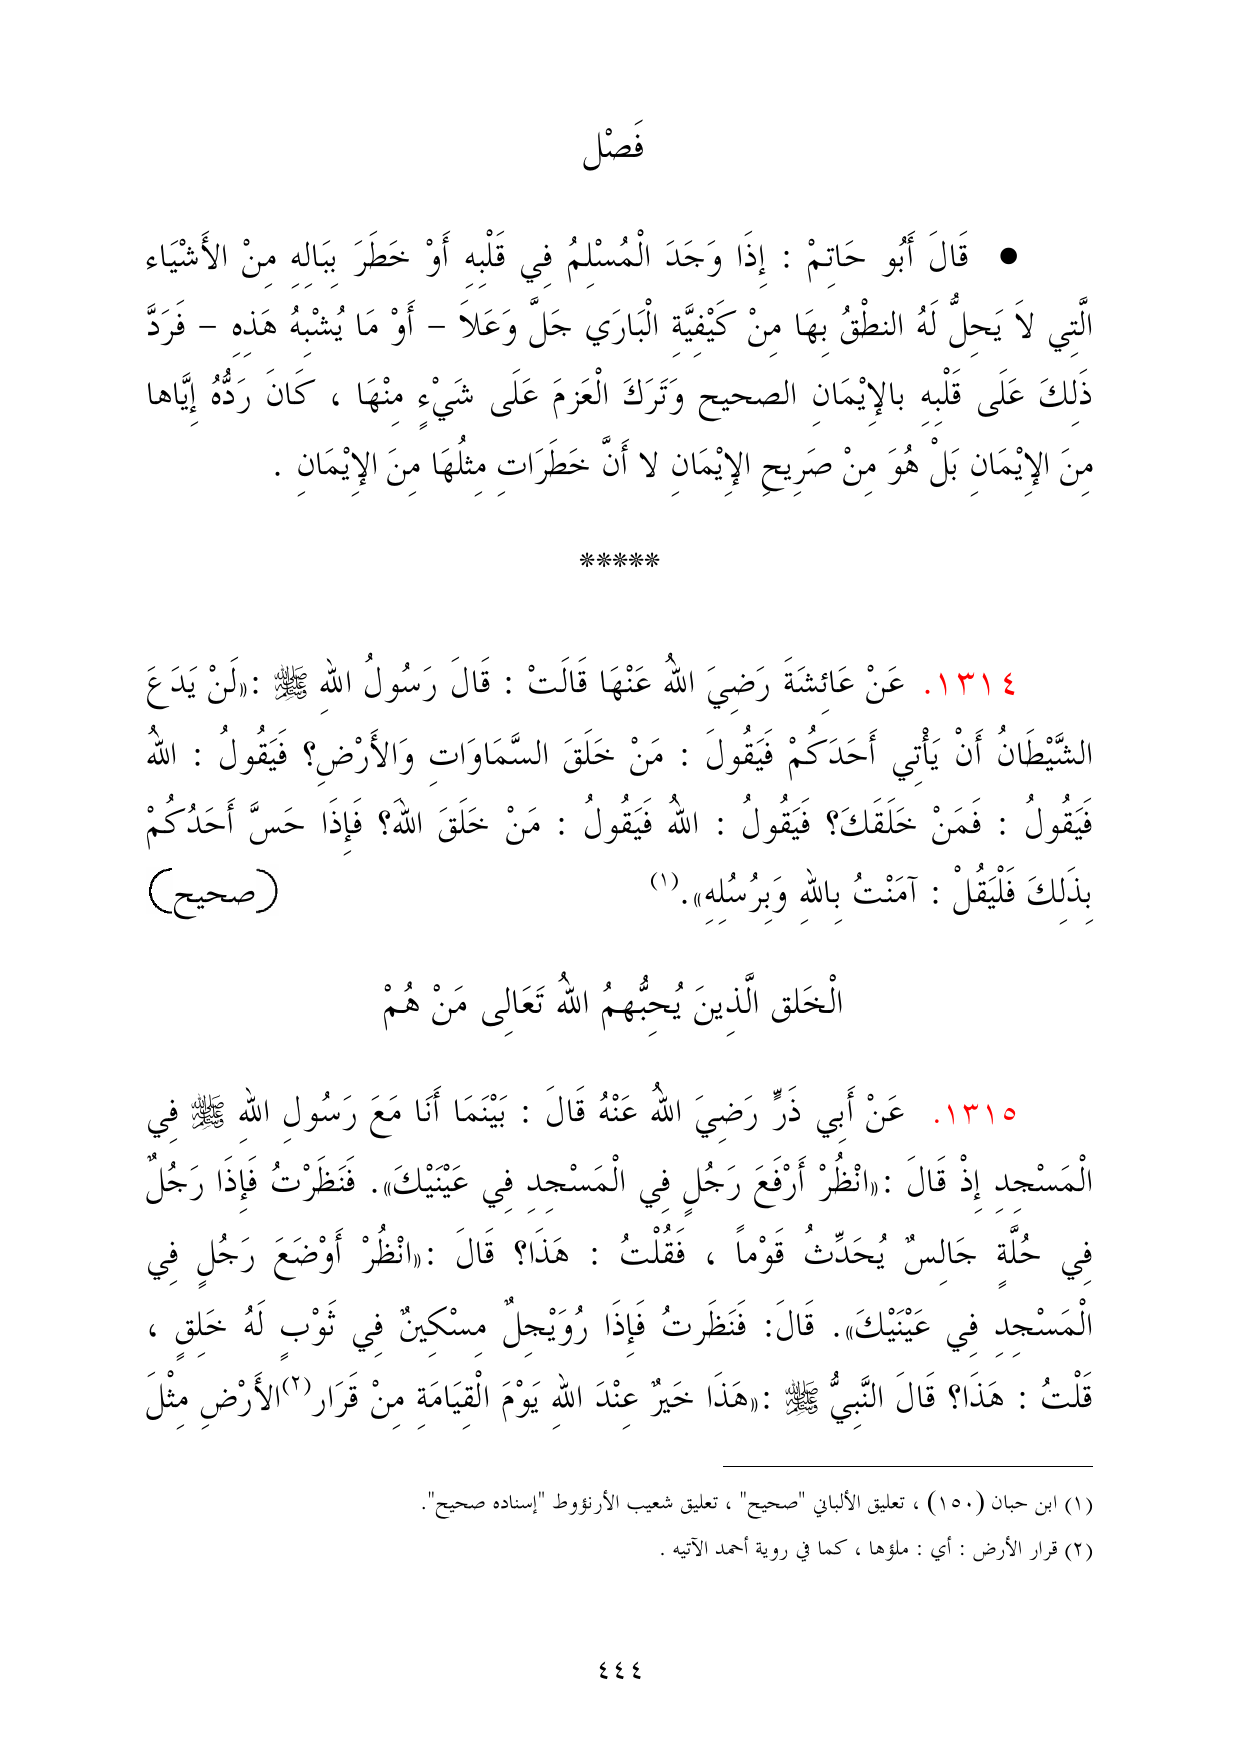 فَصْل
● قَالَ أَبُو حَاتِمْ : إِذَا وَجَدَ الْمُسْلِمُ فِي قَلْبِهِ أَوْ خَطَرَ بِبَالِهِ مِنْ الأَشْيَاء
الَّتِي لاَ يَحِلُّ لَهُ النطْقُ بِهَا مِنْ كَيْفِيَّةِ الْبَارَي جَلَّ وَعَلاَ – أَوْ مَا يُشْبِهُ هَذِهِ – فَرَدَّ
ذَلِكَ عَلَى قَلْبِهِ بالإِيْمَانِ الصحيح وَتَرَكَ الْعَزمَ عَلَى شَيْءٍ مِنْهَا ، كَانَ رَدُّهُ إِيَّاها
مِنَ الإِيْمَانِ بَلْ هُوَ مِنْ صَرِيحِ الإِيْمَانِ لا أَنَّ خَطَرَاتِ مِثلُهَا مِنَ الإِيْمَانِ .
*****
١٣١٤. عَنْ عَائِشَةَ رَضِيَ اللهُ عَنْهَا قَالَتْ : قَالَ رَسُولُ اللهِ ﷺ :«لَنْ يَدَعَ
الشَّيْطَانُ أَنْ يَأْتِي أَحَدَكُمْ فَيَقُولَ : مَنْ خَلَقَ السَّمَاوَاتِ وَالأَرْضِ؟ فَيَقُولُ : اللهُ
فَيَقُولُ : فَمَنْ خَلَقَكَ؟ فَيَقُولُ : اللهُ فَيَقُولُ : مَنْ خَلَقَ اللهَ؟ فَإِذَا حَسَّ أَحَدُكُمْ
بِذَلِكَ فَلْيَقُلْ : آمَنْتُ بِاللهِ وَبِرُسُلِهِ».(١) (صحيح)
الْخَلق الَّذِينَ يُحِبُّهمُ اللهُ تَعَالِى مَنْ هُمْ
١٣١٥. عَنْ أَبِي ذَرٍّ رَضِيَ اللهُ عَنْهُ قَالَ : بَيْنَمَا أَنَا مَعَ رَسُولِ اللهِ ﷺ فِي
الْمَسْجِدِ إِذْ قَالَ :«انْظُرْ أَرْفَعَ رَجُلٍ فِي الْمَسْجِدِ فِي عَيْنَيْكَ». فَنَظَرْتُ فَإِذَا رَجُلٌ
فِي حُلَّةٍ جَالِسٌ يُحَدِّثُ قَوْماً ، فَقُلْتُ : هَذَا؟ قَالَ :«انْظُرْ أَوْضَعَ رَجُلٍ فِي
الْمَسْجِدِ فِي عَيْنَيْكَ». قَالَ: فَنَظَرتُ فَإِذَا رُوَيْجِلٌ مِسْكِينٌ فِي ثَوْبٍ لَهُ خَلِقٍ ،
قَلْتُ : هَذَا؟ قَالَ النَّبِيُّ ﷺ :«هَذَا خَيرٌ عِنْدَ اللهِ يَوْمَ الْقِيَامَةِ مِنْ قَرَار(٢)الأَرْضِ مِثْلَ
(١) ابن حبان (١٥٠) ، تعليق الألباني "صحيح" ، تعليق شعيب الأرنؤوط "إسناده صحيح".
(٢) قرار الأرض : أي : ملؤها ، كما في روية أحمد الآتيه .
٤٤٤